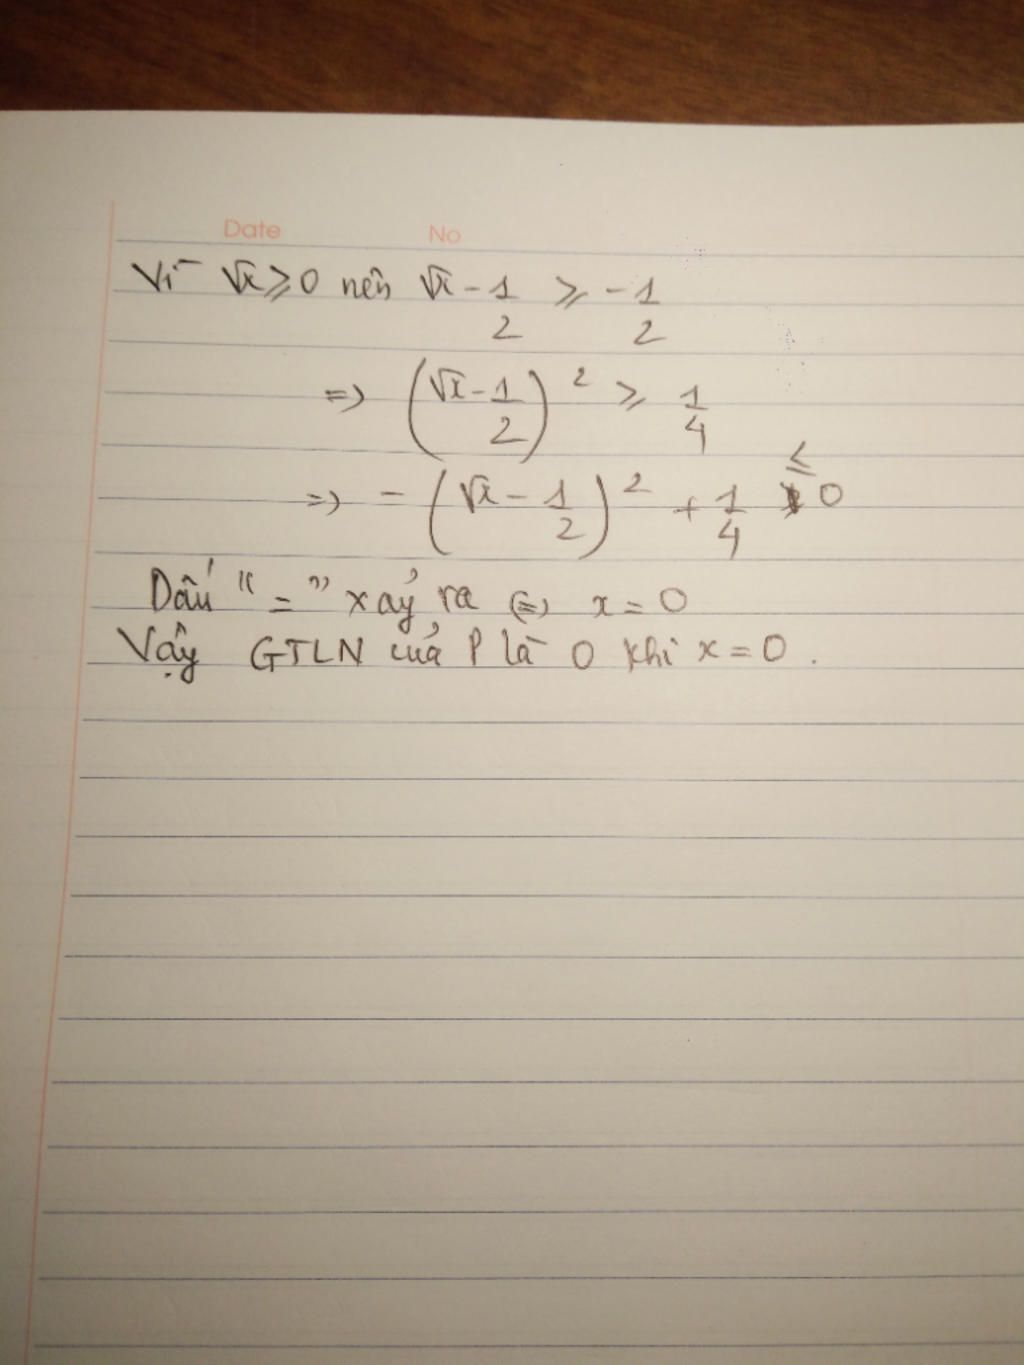 Date No
Vì √x ≥ 0 nên √x - 1/2 ≥ - 1/2
=> (√x - 1/2)² ≥ 1/4
=> - (√x - 1/2)² + 1/4 ≤ 0
Dấu " = " xảy ra <=> x = 0
Vậy GTLN của P là 0 khi x = 0.